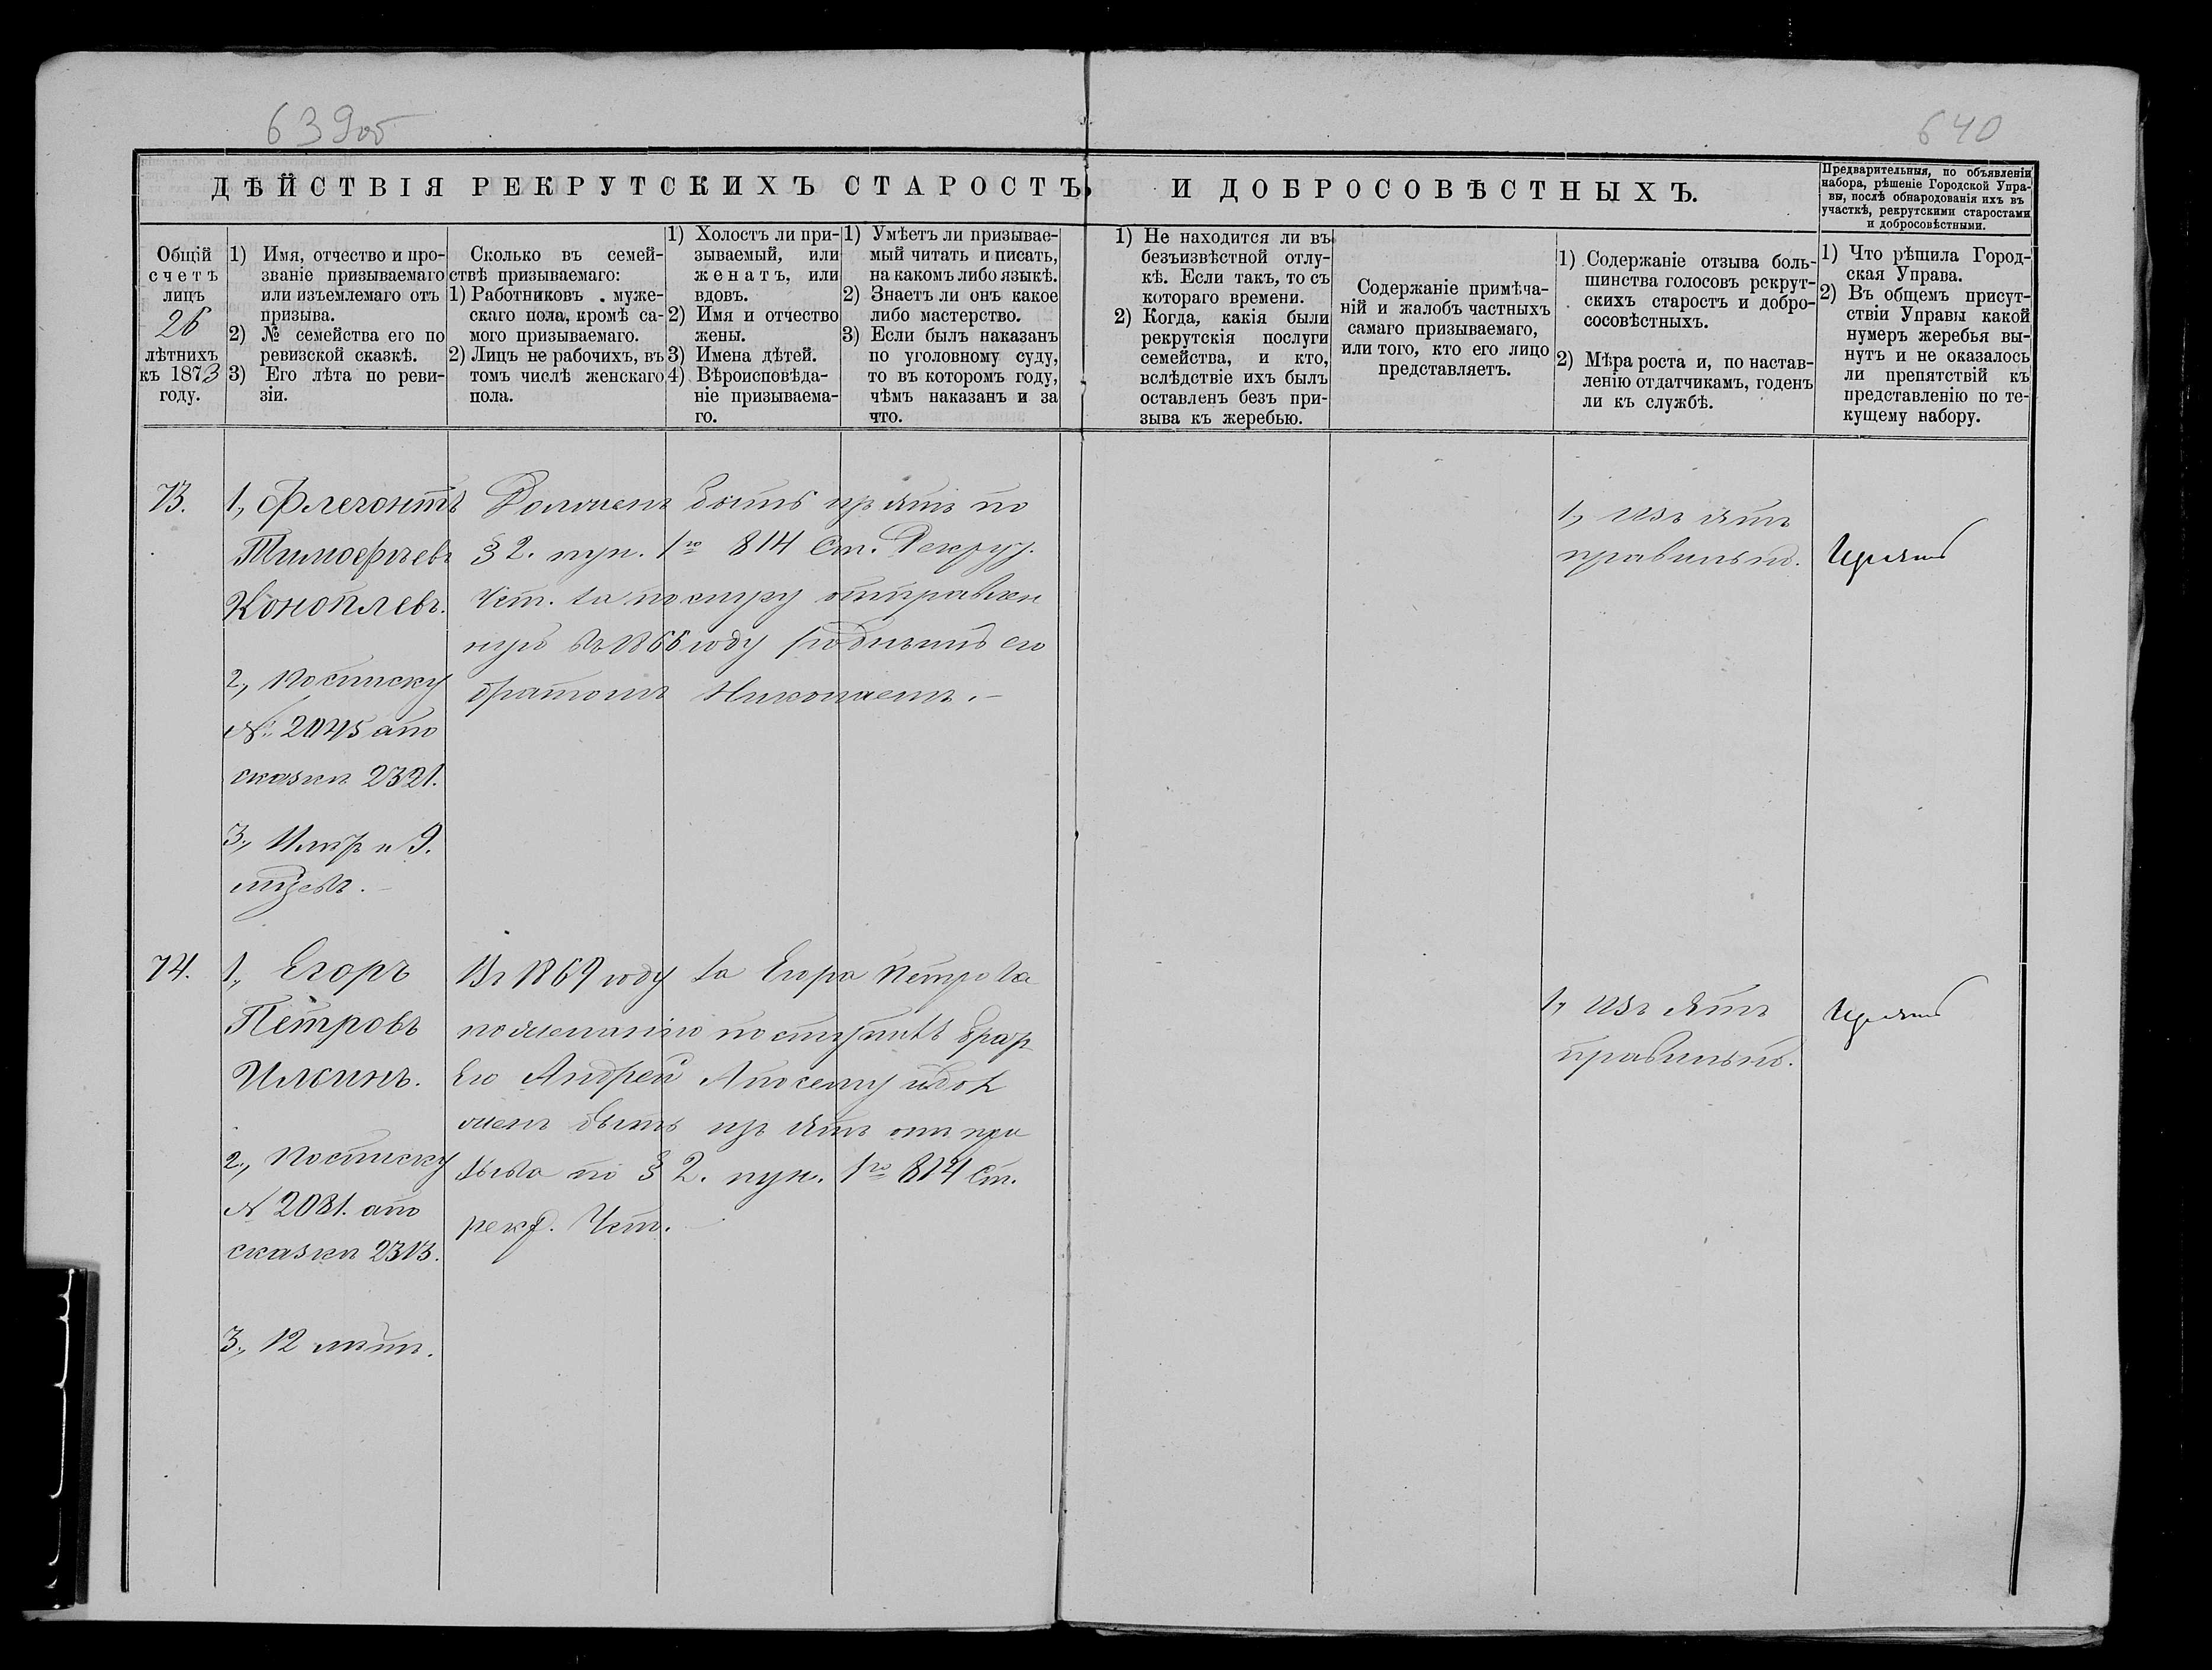 639об
640
ДѢЙСТВІЯ РЕКРУТСКИХЪ СТАРОСТЪ И ДОБРОСОВѢСТНЫХЪ.
Предварительныя, по объявленіи
набора, рѣшеніе Городской Упра-
вы, послѣ обнародованія ихъ въ
участкѣ, рекрутскими старостами
и добросовѣстными.
Общій
счетъ
лицъ
26
лѣтнихъ
къ 1873
году.
1) Имя, отчество и про-
званіе призываемаго
или изъемлемаго отъ
призыва.
2) № семейства его по
ревизской сказкѣ.
3) Его лѣта по реви-
зіи.
Сколько въ семей-
ствѣ призываемаго:
1) Работниковъ муже-
скаго пола, кромѣ са-
мого призываемаго.
2) Лицъ не рабочихъ, въ
томъ числѣ женскаго
пола.
1) Холостъ ли при-
зываемый, или
женатъ, или
вдовъ.
2) Имя и отчество
жены.
3) Имена дѣтей.
4) Вѣроисповѣда-
ніе призываема-
го.
1) Умѣетъ ли призывае-
мый читать и писать,
на какомъ либо языкѣ.
2) Знаетъ ли онъ какое
либо мастерство.
3) Если былъ наказанъ
по уголовному суду,
то въ которомъ году,
чѣмъ наказанъ и за
что.
1) Не находится ли въ
безъизвѣстной отлу-
кѣ. Если такъ, то съ
котораго времени.
2) Когда, какія были
рекрутскія послуги
семейства, и кто,
вслѣдствіе ихъ былъ
оставленъ безъ при-
зыва къ жеребью.
Содержаніе примѣча-
ній и жалобъ частныхъ
самаго призываемаго,
или того, кто его лицо
представляетъ.
1) Содержаніе отзыва боль-
шинства голосовъ рекрут-
скихъ старостъ и добро-
совѣстныхъ.
2) Мѣра роста и, по настав-
ленію отдатчикамъ, годенъ
ли къ службѣ.
1) Что рѣшила Город-
ская Управа.
2) Въ общемъ присут-
ствіи Управы какой
нумеръ жеребья вы-
нутъ и не оказалось
ли препятствій къ
представленію по те-
кущему набору.
73.
1, Флегонтъ
Тимофѣевъ
Коноплевъ.
2, По списку
№ 2045 а по
сказкѣ 2321.
3,
Долженъ быть изъятъ по
§ 2. пун. 1го 814 Ст. Рекру.
Уст. за
въ 1866 году роднымъ его
братомъ Николаемъ.
1, Изъятъ
правильно.
Изъять
74.
1, Егоръ
Петровъ
Илсинъ.
2, По списку
№ 2081. а по
сказкѣ 2313.
3, 12 лѣтъ.
Въ 1869 году за Егора Петрова
по желанію поступилъ братъ
Его Андрей А посему и дол
женъ быть изъятъ отъ при
зыва по § 2. пун. 1го 814 Ст.
рекр. Уст.
1, Изъятъ
правильно.
Изъять